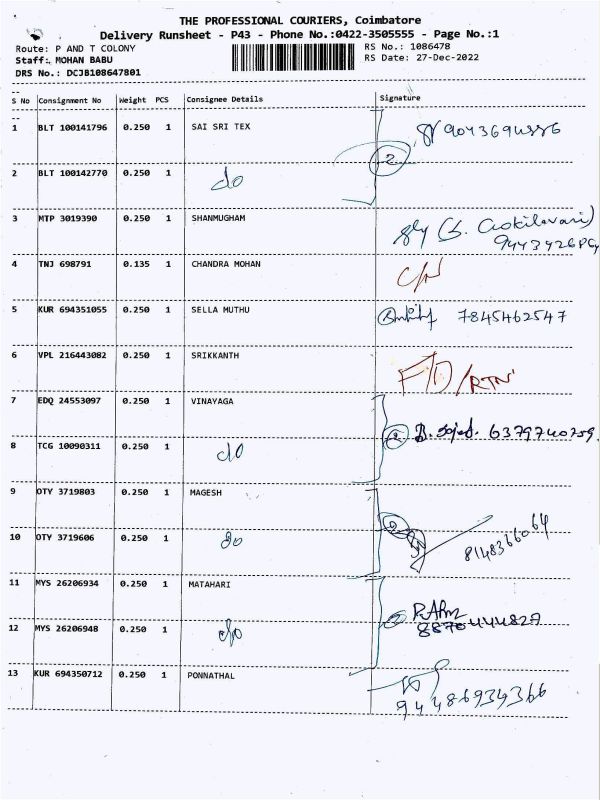 THE PROFESSIONAL COURIERS, Coimbatore
Delivery Runsheet - P43 - Phone No.:0422-3505555 - Page No.:1
Route: P AND T COLONY RS No.: 1086478
Staff: MOHAN BABU RS Date: 27-Dec-2022
DRS No.: DCJB108647801
S No Consignment No Weight PCS Consignee Details Signature
1 BLT 100141796 0.250 1 SAI SRI TEX
2 BLT 100142770 0.250 1 do 2
3 MTP 3019390 0.250 1 SHANMUGHAM
4 TNJ 698791 0.135 1 CHANDRA MOHAN
5 KUR 694351055 0.250 1 SELLA MUTHU 7845462547
6 VPL 216443082 0.250 1 SRIKKANTH /RTN
7 EDQ 24553097 0.250 1 VINAYAGA 2 6379740759
8 TCG 10090311 0.250 1 do
9 OTY 3719803 0.250 1 MAGESH
10 OTY 3719606 0.250 1 do 8148366064
11 MYS 26206934 0.250 1 MATAHARI
12 MYS 26206948 0.250 1 do 8870444827
13 KUR 694350712 0.250 1 PONNATHAL
94486934366